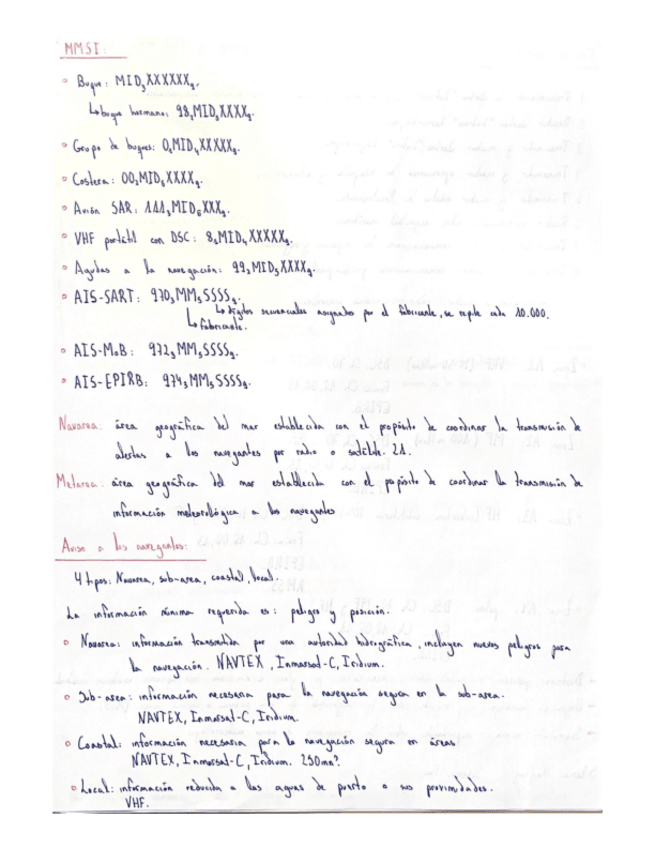 MMSI:
◦ Buque: MID₃XXXXXX₉.
↳ buque hermano: 98₂MID₅XXXX₉.
◦ Grupo de buques: 0₁MID₄XXXXX₉.
◦ Costera: 00₂MID₅XXXX₉.
◦ Avión SAR: 111₃MID₆XXX₉.
◦ VHF portátil con DSC: 8₁MID₄XXXXX₉.
◦ Ayudas a la navegación: 99₂MID₅XXXX₉.
◦ AIS-SART: 970₃MM₅SSSS₉.
↳ dígitos secuenciales asignados por el fabricante, se repite cada 10.000.
↳ fabricante.
◦ AIS-MOB: 972₃MM₅SSSS₉.
◦ AIS-EPIRB: 974₃MM₅SSSS₉.
Navarea: área geográfica del mar establecida con el propósito de coordinar la transmisión de
alertas a los navegantes por radio o satélite. 21.
Metarea: área geográfica del mar establecida con el propósito de coordinar la transmisión de
información meteorológica a los navegantes
Aviso a los navegantes:
4 tipos: Navarea, sub-area, coastal, local.
La información mínima requerida es: peligro y posición.
◦ Navarea: información transmitida por una autoridad hidrográfica, incluyen nuevos peligros para
la navegación. NAVTEX, Inmarsat-C, Iridium.
◦ Sub-area: información necesaria para la navegación segura en la sub-area.
NAVTEX, Inmarsat-C, Iridium.
◦ Coastal: información necesaria para la navegación segura en áreas
NAVTEX, Inmarsat-C, Iridium. 250nm².
◦ Local: información reducida a las aguas de puerto o sus proximidades.
VHF.